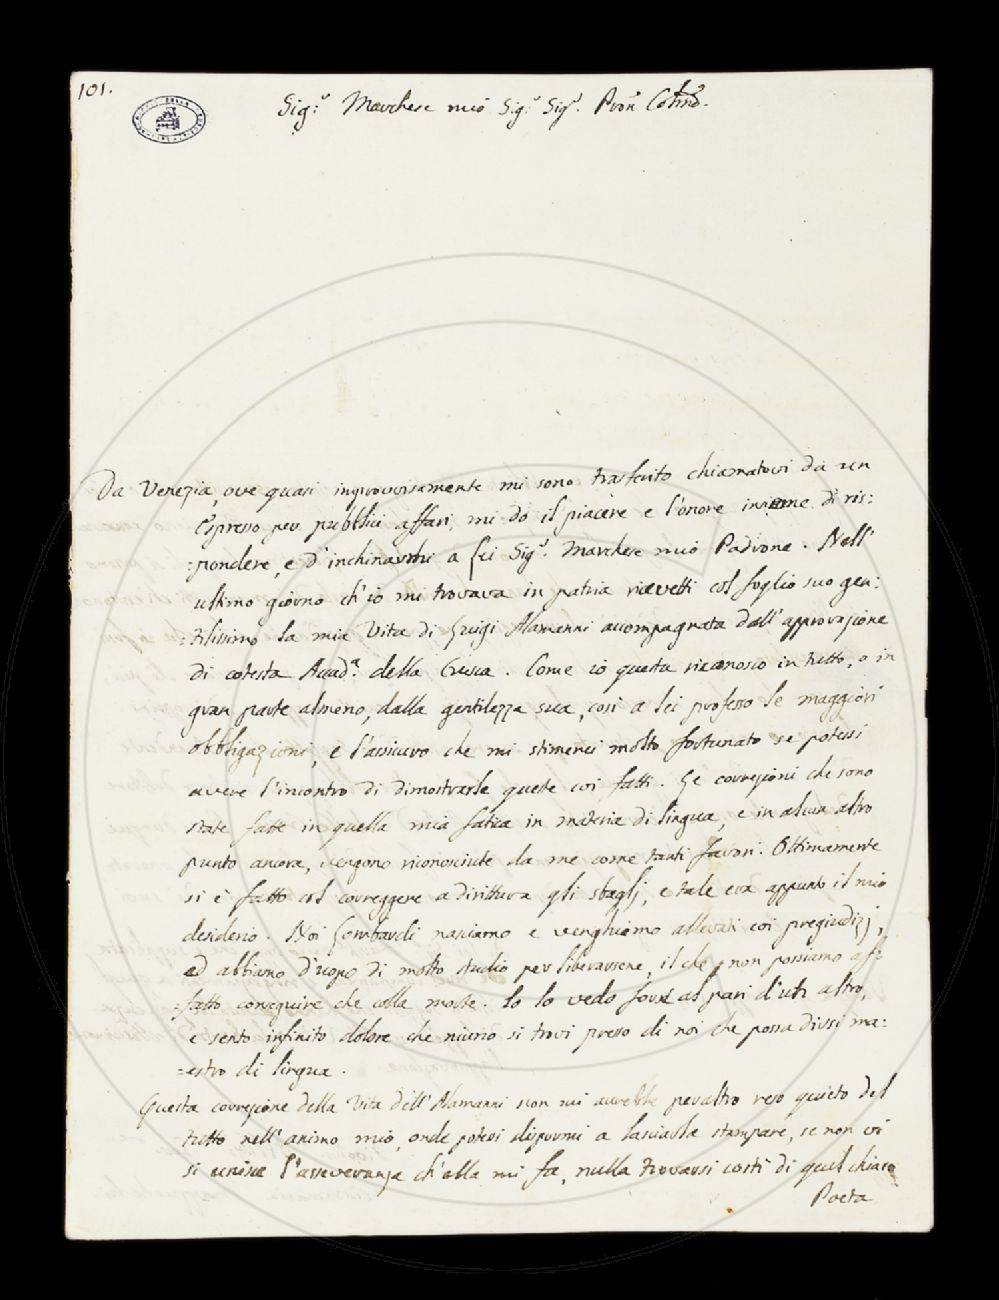 101.
Sig:r Marchese mio Sig:r Sig:r Pron Colmo.
Da Venezia, ove quasi improvvisamente mi sono trasferito chiamatovi da un
Espresso per pubblici affari, mi do il piacere e l'onore insieme di ris:
:pondere, e d'inchinarmi a Lei Sig:r Marchese mio Padrone. Nell'
ultimo giorno ch'io mi trovava in patria ricevetti col foglio suo gen:
:tilissimo la mia Vita di Luigi Alamanni accompagnata dall'approvazione
di cotesta Accad:a della Crusca. Come io questa riconosco in tutto, o in
gran parte almeno, dalla gentilezza sua, così a lei professo le maggiori
obbligazioni, e l'assicuro che mi stimerei molto fortunato se potessi
avere l'incontro di dimostrarle queste coi fatti. Le correzioni che sono
state fatte in quella mia fatica in materia di lingua, e in alcun altro
punto ancora, vengono riconosciute da me come tanti favori. Ottimamente
si è fatto col correggere a dirittura gli sbaglj, e tale era appunto il mio
desiderio. Noi Lombardi nasciamo e venghiamo allevati coi pregiudizj,
ed abbiamo d'uopo di molto studio per liberarsene, il che non possiamo af:
:fatto conseguire che colla morte. Io lo vedo forse al pari d'ogni altro,
e sento infinito dolore che niuno si trovi presso di noi che possa dirsi ma:
:estro di lingua.
Questa correzione della Vita dell'Alamanni non mi avrebbe peraltro reso quieto del
tutto nell'animo mio, onde potessi dispormi a lasciarla stampare, se non vi
si unisse l'asseveranza ch'ella mi fa, nulla trovarsi costì di quel chiaro
Poeta